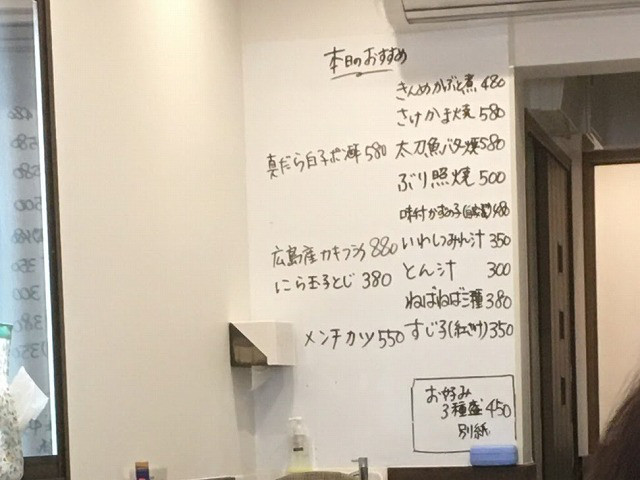 本日のおすすめ
きんめかぶと煮 480
さけかま焼 580
真だら白子ポン酢 580
太刀魚バター焼 580
ぶり照焼 500
味付かずの子 480
広島産カキフライ 880
いわしつみれ汁 350
にら玉子とじ 380
とん汁 300
ねばねば三種 380
メンチカツ 550
すじ子(紅さけ) 350
お好み
3種盛 450
別紙